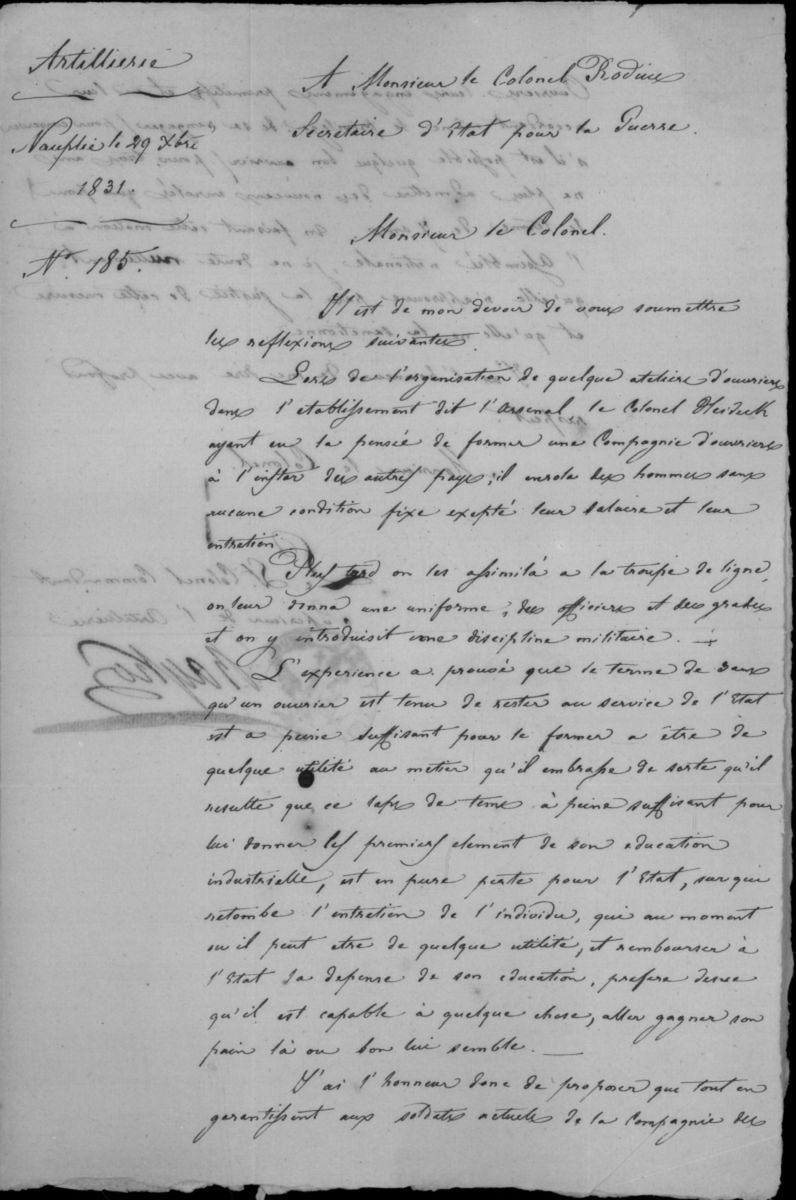 Artillierie
Nauplie le 29 Xbre
1831.
N.° 185.
A Monsieur le Colonel Rodius
Secretaire d'Etat pour la Guerre.
Monsieur le Colonel.
Il est de mon devoir de vous soumettre
les reflexions suivantes.
Lors de l'organisation de quelque ateliers d'ouvriers
dans l'etablissement dit l'Arsenal le Colonel Heideck
ayant eu la pensée de former une Compagnie d'ouvriers
à l'instar des autres pays; il enrola des hommes sans
aucune condition fixe exepté leur salaire et leur
entretien
Plus tard on les assimilá a la troupe de ligne,
on leur donna une uniforme, des officiers et des grades
et on y introduisit une discipline militaire.
L'experience a prouvé que le terme de 3 ans
qu'un ouvrier est tenu de rester au service de l'Etat
est a peine suffisant pour le former a être de
quelque utilité au metier qu'il embrasse de sorte qu'il
resulte que ce laps de tems à peine suffisant pour
lui donner les premiers element de son education
industrielle, est en pure perte pour l'Etat, sur qui
retombe l'entretien de l'individu, qui au moment
ou il peut etre de quelque utilité, et rembourser à
l'Etat la depense de son education, prefere desee
qu'il est capable à quelque chose, aller gagner son
pain là ou bon lui semble.
J'ai l'honneur donc de proposer que tout en
garantissent aux soldats actuels de la Compagnie des